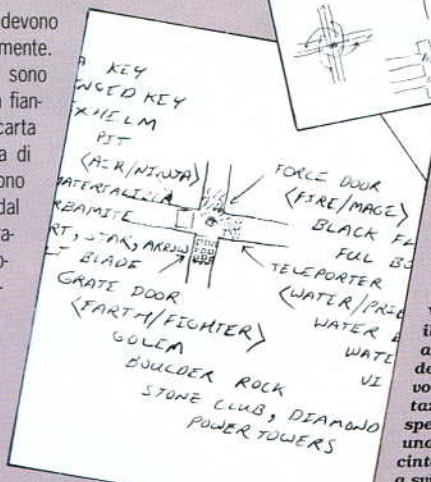 devono
mente.
sono
fian-
carta
a di
ono
dal
KEY
NGED KEY
XHELM
PIT
<AIR/NINJA>
MATERIALIZER
RBAMITE
RT, STAR, ARROW
BLADE
GRATE DOOR
<EARTH/FIGHTER>
GOLEM
BOULDER ROCK
STONE CLUB, DIAMOND
POWER TOWERS
FORCE DOOR
<FIRE/MAGE>
BLACK FL
FUL BO
TELEPORTER
<WATER/PRIE
WATER E
WATE
VI
il
a
de
vo
taz
spe
una
cint
a svi